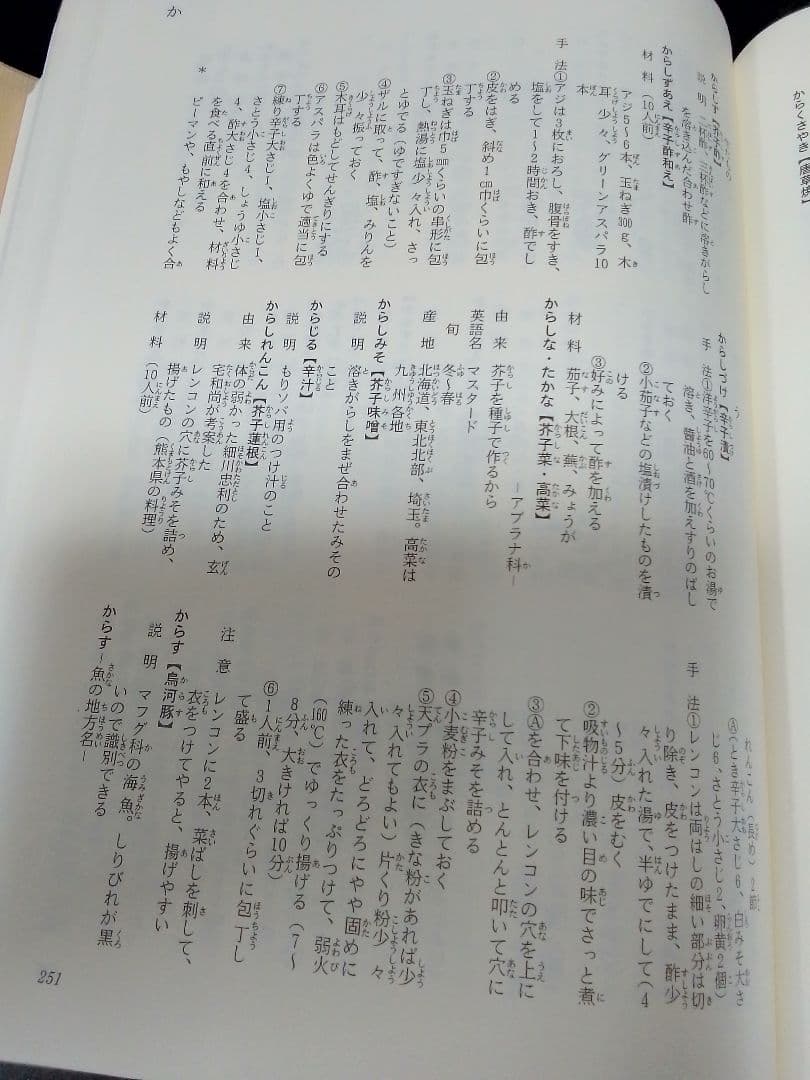 か
からくさやき【唐草焼】
からしず【芥子酢】
説明 二杯酢、三杯酢などに溶きがらし
を溶き込んだ合わせ酢
からしずあえ【辛子酢和え】
材料(10人前)
アジ5～6本、玉ねぎ300g、木
耳少々、グリーンアスパラ10
本
手法①アジは3枚におろし、腹骨をすき、
塩をして1～2時間おき、酢でし
める
②皮をはぎ、斜め1cm巾くらいに包
丁する
③玉ねぎは巾5mmくらいの串形に包
丁し、熱湯に塩少々入れ、さっ
とゆでる(ゆですぎないこと)
④ザルに取って、酢、塩、みりんを
少々振っておく
⑤木耳はもどしてせんぎりにする
⑥アスパラは色よくゆで適当に包
丁する
⑦練り辛子大さじ1、塩小さじ1、
さとう小さじ4、しょうゆ小さじ
4、酢大さじ4を合わせ、材料
を食べる直前に和える
* ピーマンや、もやしなどもよく合
う
からしづけ【辛子漬】
手法①洋辛子を60～70℃くらいのお湯で
溶き、醤油と酒を加えすりのばし
ておく
②小茄子などの塩漬けしたものを漬
ける
③好みによって酢を加える
材料 茄子、大根、蕪、みょうが
からしな・たかな【芥子菜・高菜】
―アブラナ科―
由来 芥子を種子で作るから
英語名 マスタード
旬 冬～春
産地 北海道、東北北部、埼玉。高菜は
九州各地
からしみそ【芥子味噌】
説明 溶きがらしをまぜ合わせたみその
こと
からじる【辛汁】
説明 もりソバ用のつけ汁のこと
からしれんこん【芥子蓮根】
由来 体の弱かった細川忠利のため、玄
宅和尚が考案した
説明 レンコンの穴に芥子みそを詰め、
揚げたもの(熊本県の料理)
材料(10人前)
れんこん(長め)2節
Ⓐ(とき辛子大さじ6、白みそ大さ
じ6、さとう小さじ2、卵黄2個)
手法①レンコンは両はしの細い部分は切
り除き、皮をつけたまま、酢少
々入れた湯で、半ゆでにして(4
～5分)皮をむく
②吸物汁より濃い目の味でさっと煮
て下味を付ける
③Ⓐを合わせ、レンコンの穴を上に
して入れ、とんとんと叩いて穴に
辛子みそを詰める
④小麦粉をまぶしておく
⑤天プラの衣に(きな粉があれば少
々入れてもよい)片くり粉少々
入れて、どろどろにやや固めに
練った衣をたっぷりつけて、弱火
(160℃)でゆっくり揚げる(7～
8分、大きければ10分)
⑥1人前、3切れぐらいに包丁し
て盛る
注意 レンコンに2本、菜ばしを刺して、
衣をつけてやると、揚げやすい
からす【烏河豚】
説明 マフグ科の海魚。しりびれが黒
いので識別できる
からす―魚の地方名―
251